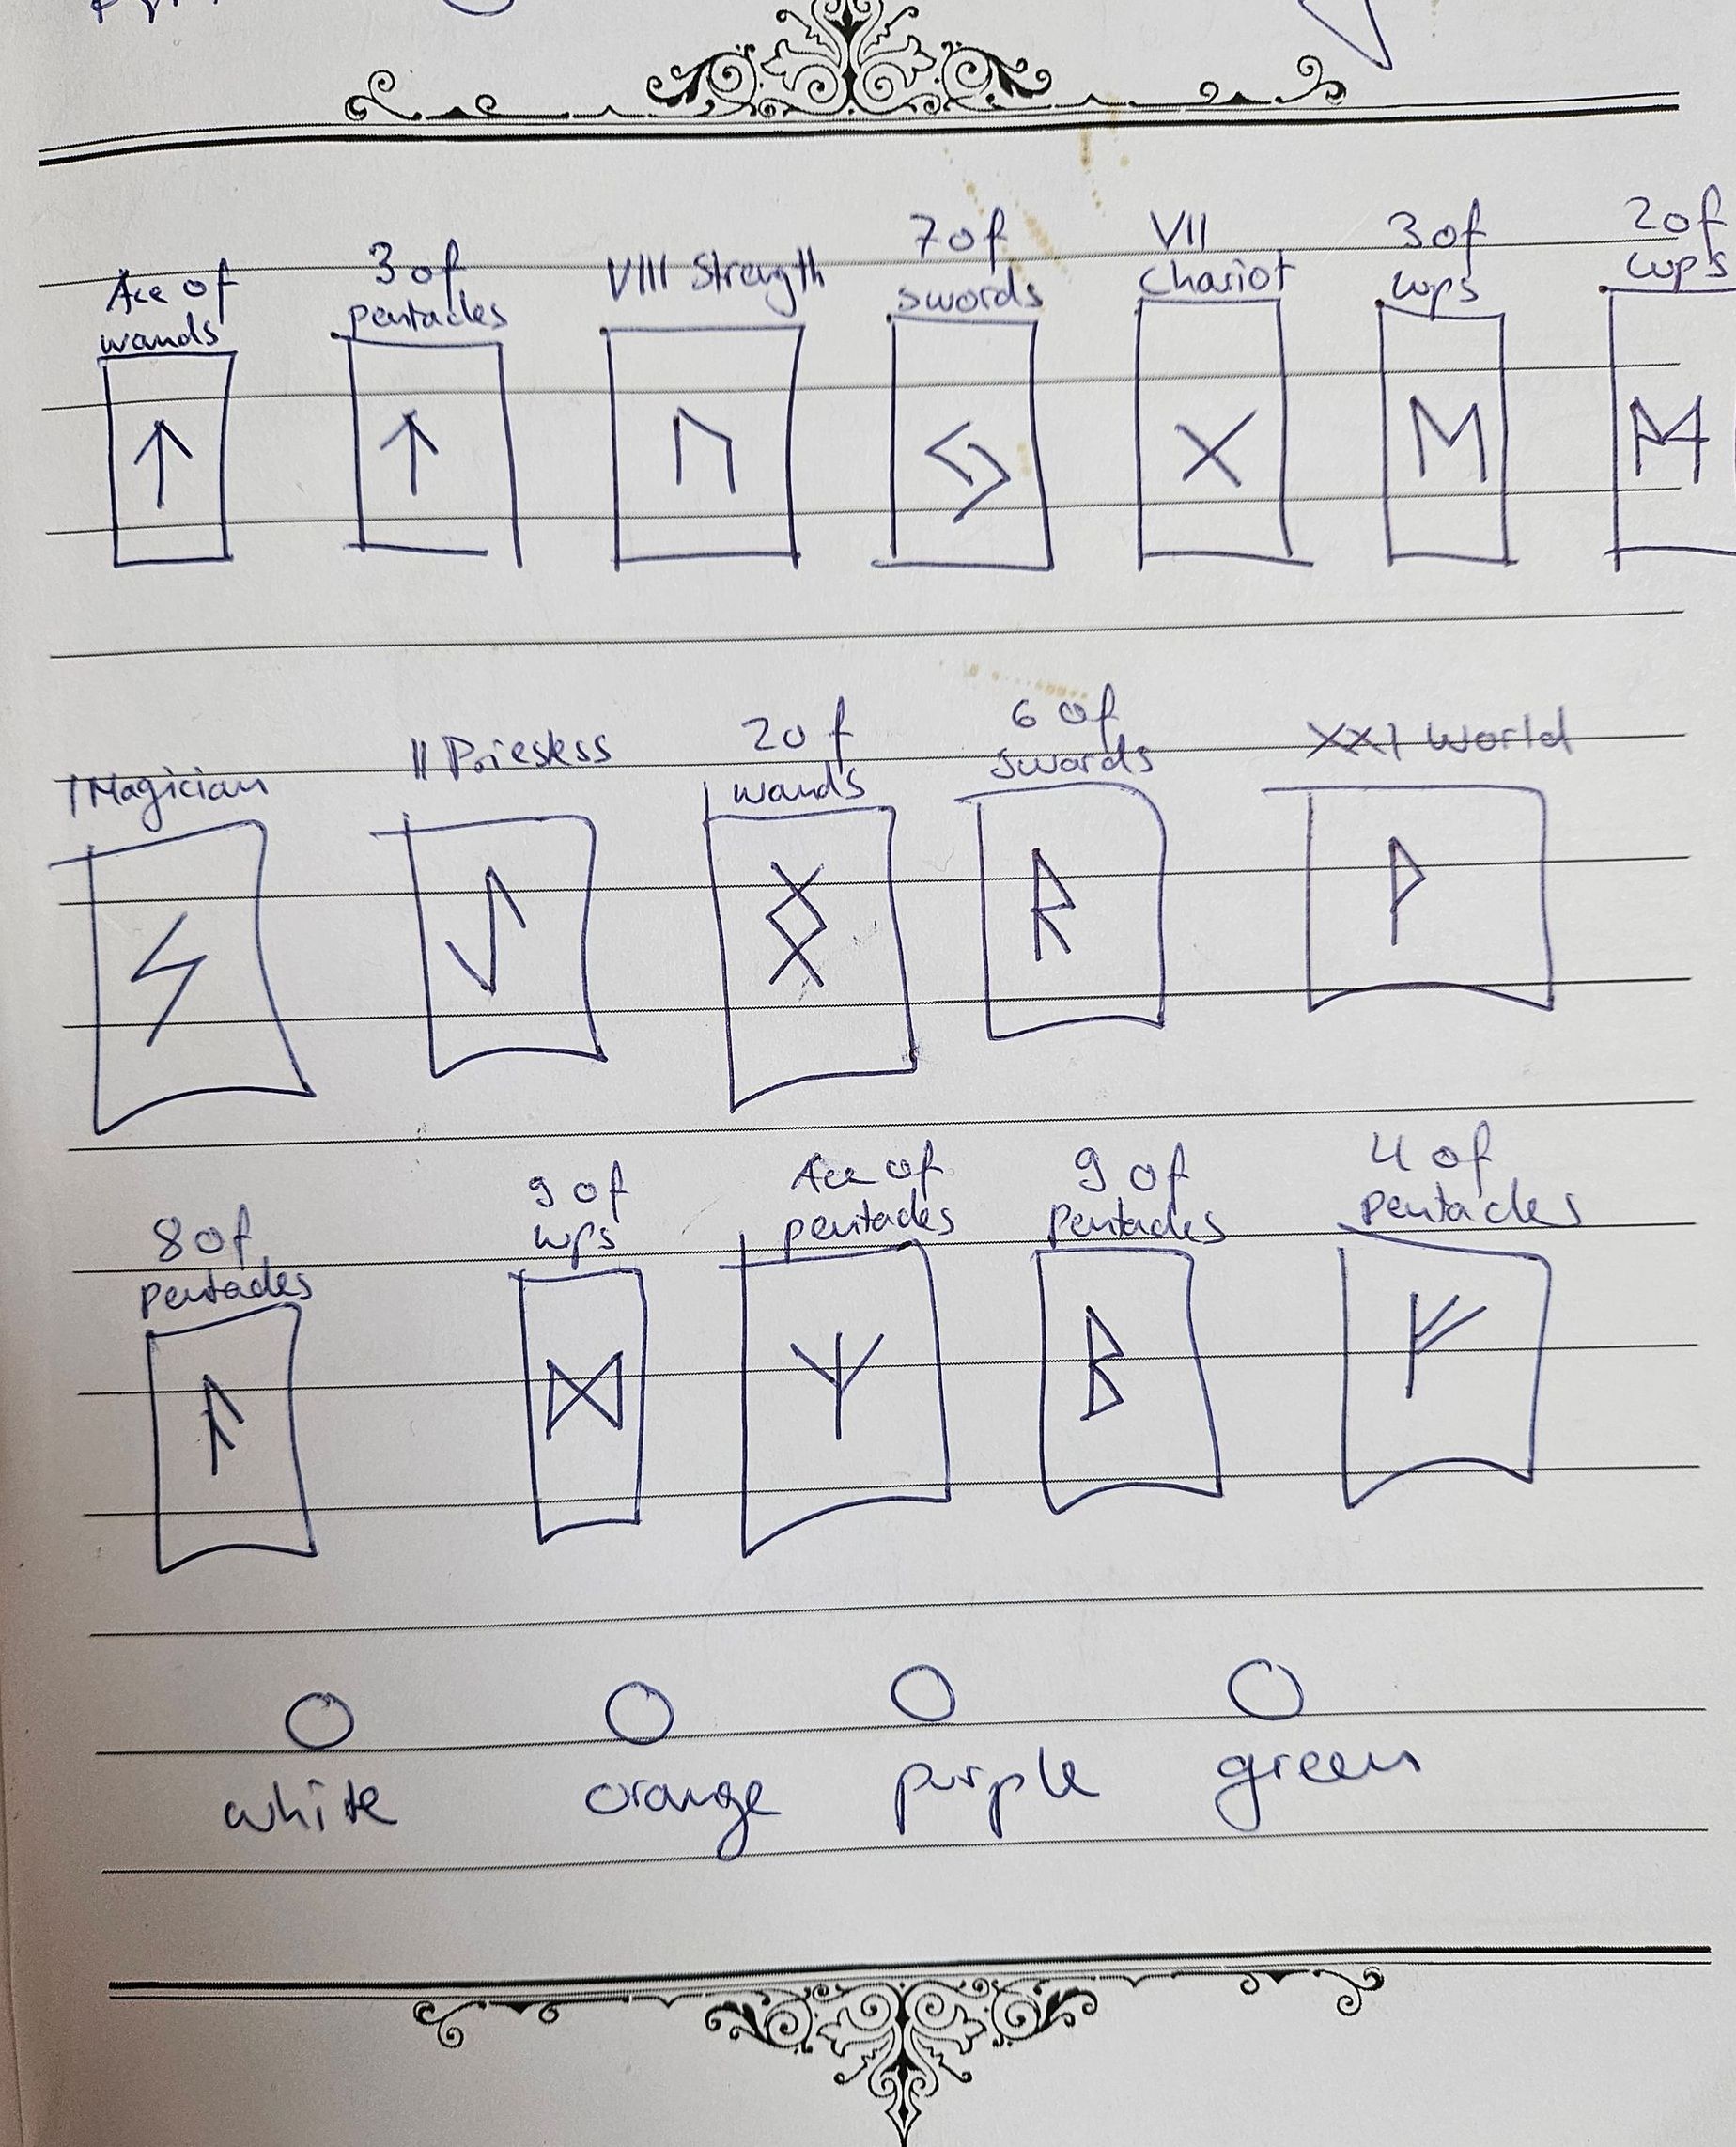 Ace of wands
3 of pentacles
VIII Strength
7 of swords
VII Chariot
3 of cups
2 of cups
ᛏ ᛏ ᚢ ᛃ ᚷ ᛖ ᛗ
I Magician
II Priestess
2 of wands
6 of swords
XXI World
ᛋ ᛇ ᛝ ᚱ ᚹ
8 of pentacles
9 of cups
Ace of pentacles
9 of pentacles
4 of pentacles
ᚨ ᛞ ᛉ ᛒ ᚠ
white orange purple green